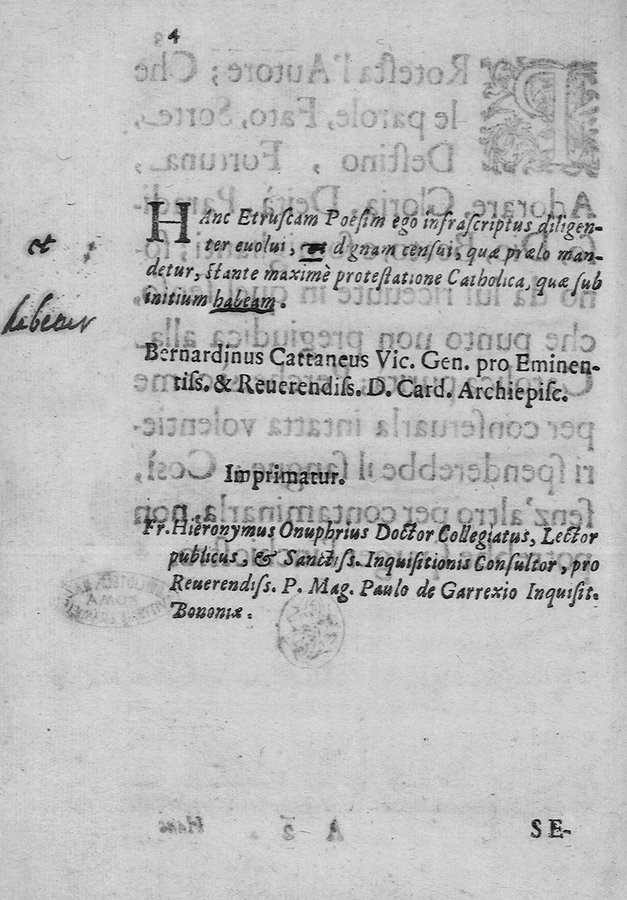 4
HAnc Etruscam Poesim ego infrascriptus diligen-
ter euolui, et dgnam censui, quæ prælo man-
et
detur, stante maximè protestatione Catholica, quæ sub
initium habeam.
habetur
Bernardinus Cattaneus Vic. Gen. pro Eminen-
tiss. & Reuerendiss. D. Card. Archiepisc.
Imprimatur.
Fr. Hieronymus Onuphrius Doctor Collegiatus, Lector
publicus, & Sanctiss. Inquisitionis Consultor, pro
Reuerendiss. P. Mag. Paulo de Garrexio Inquisit.
Bononiæ.
SE-